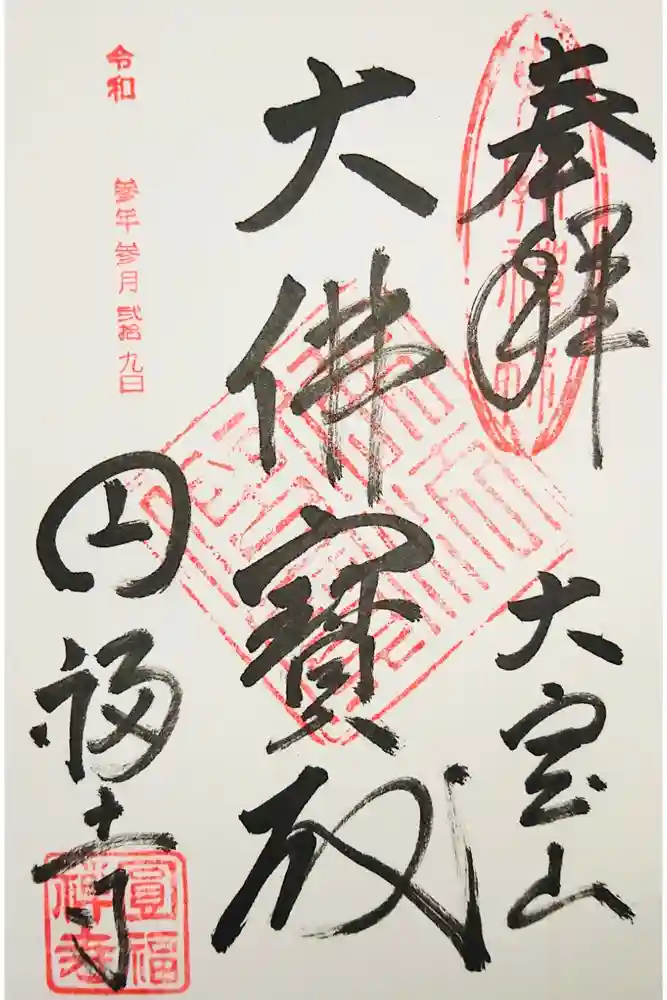 奉拝
大宝山
大佛寳殿
令和 参年参月弐拾九日
円福寺
圓福禅寺